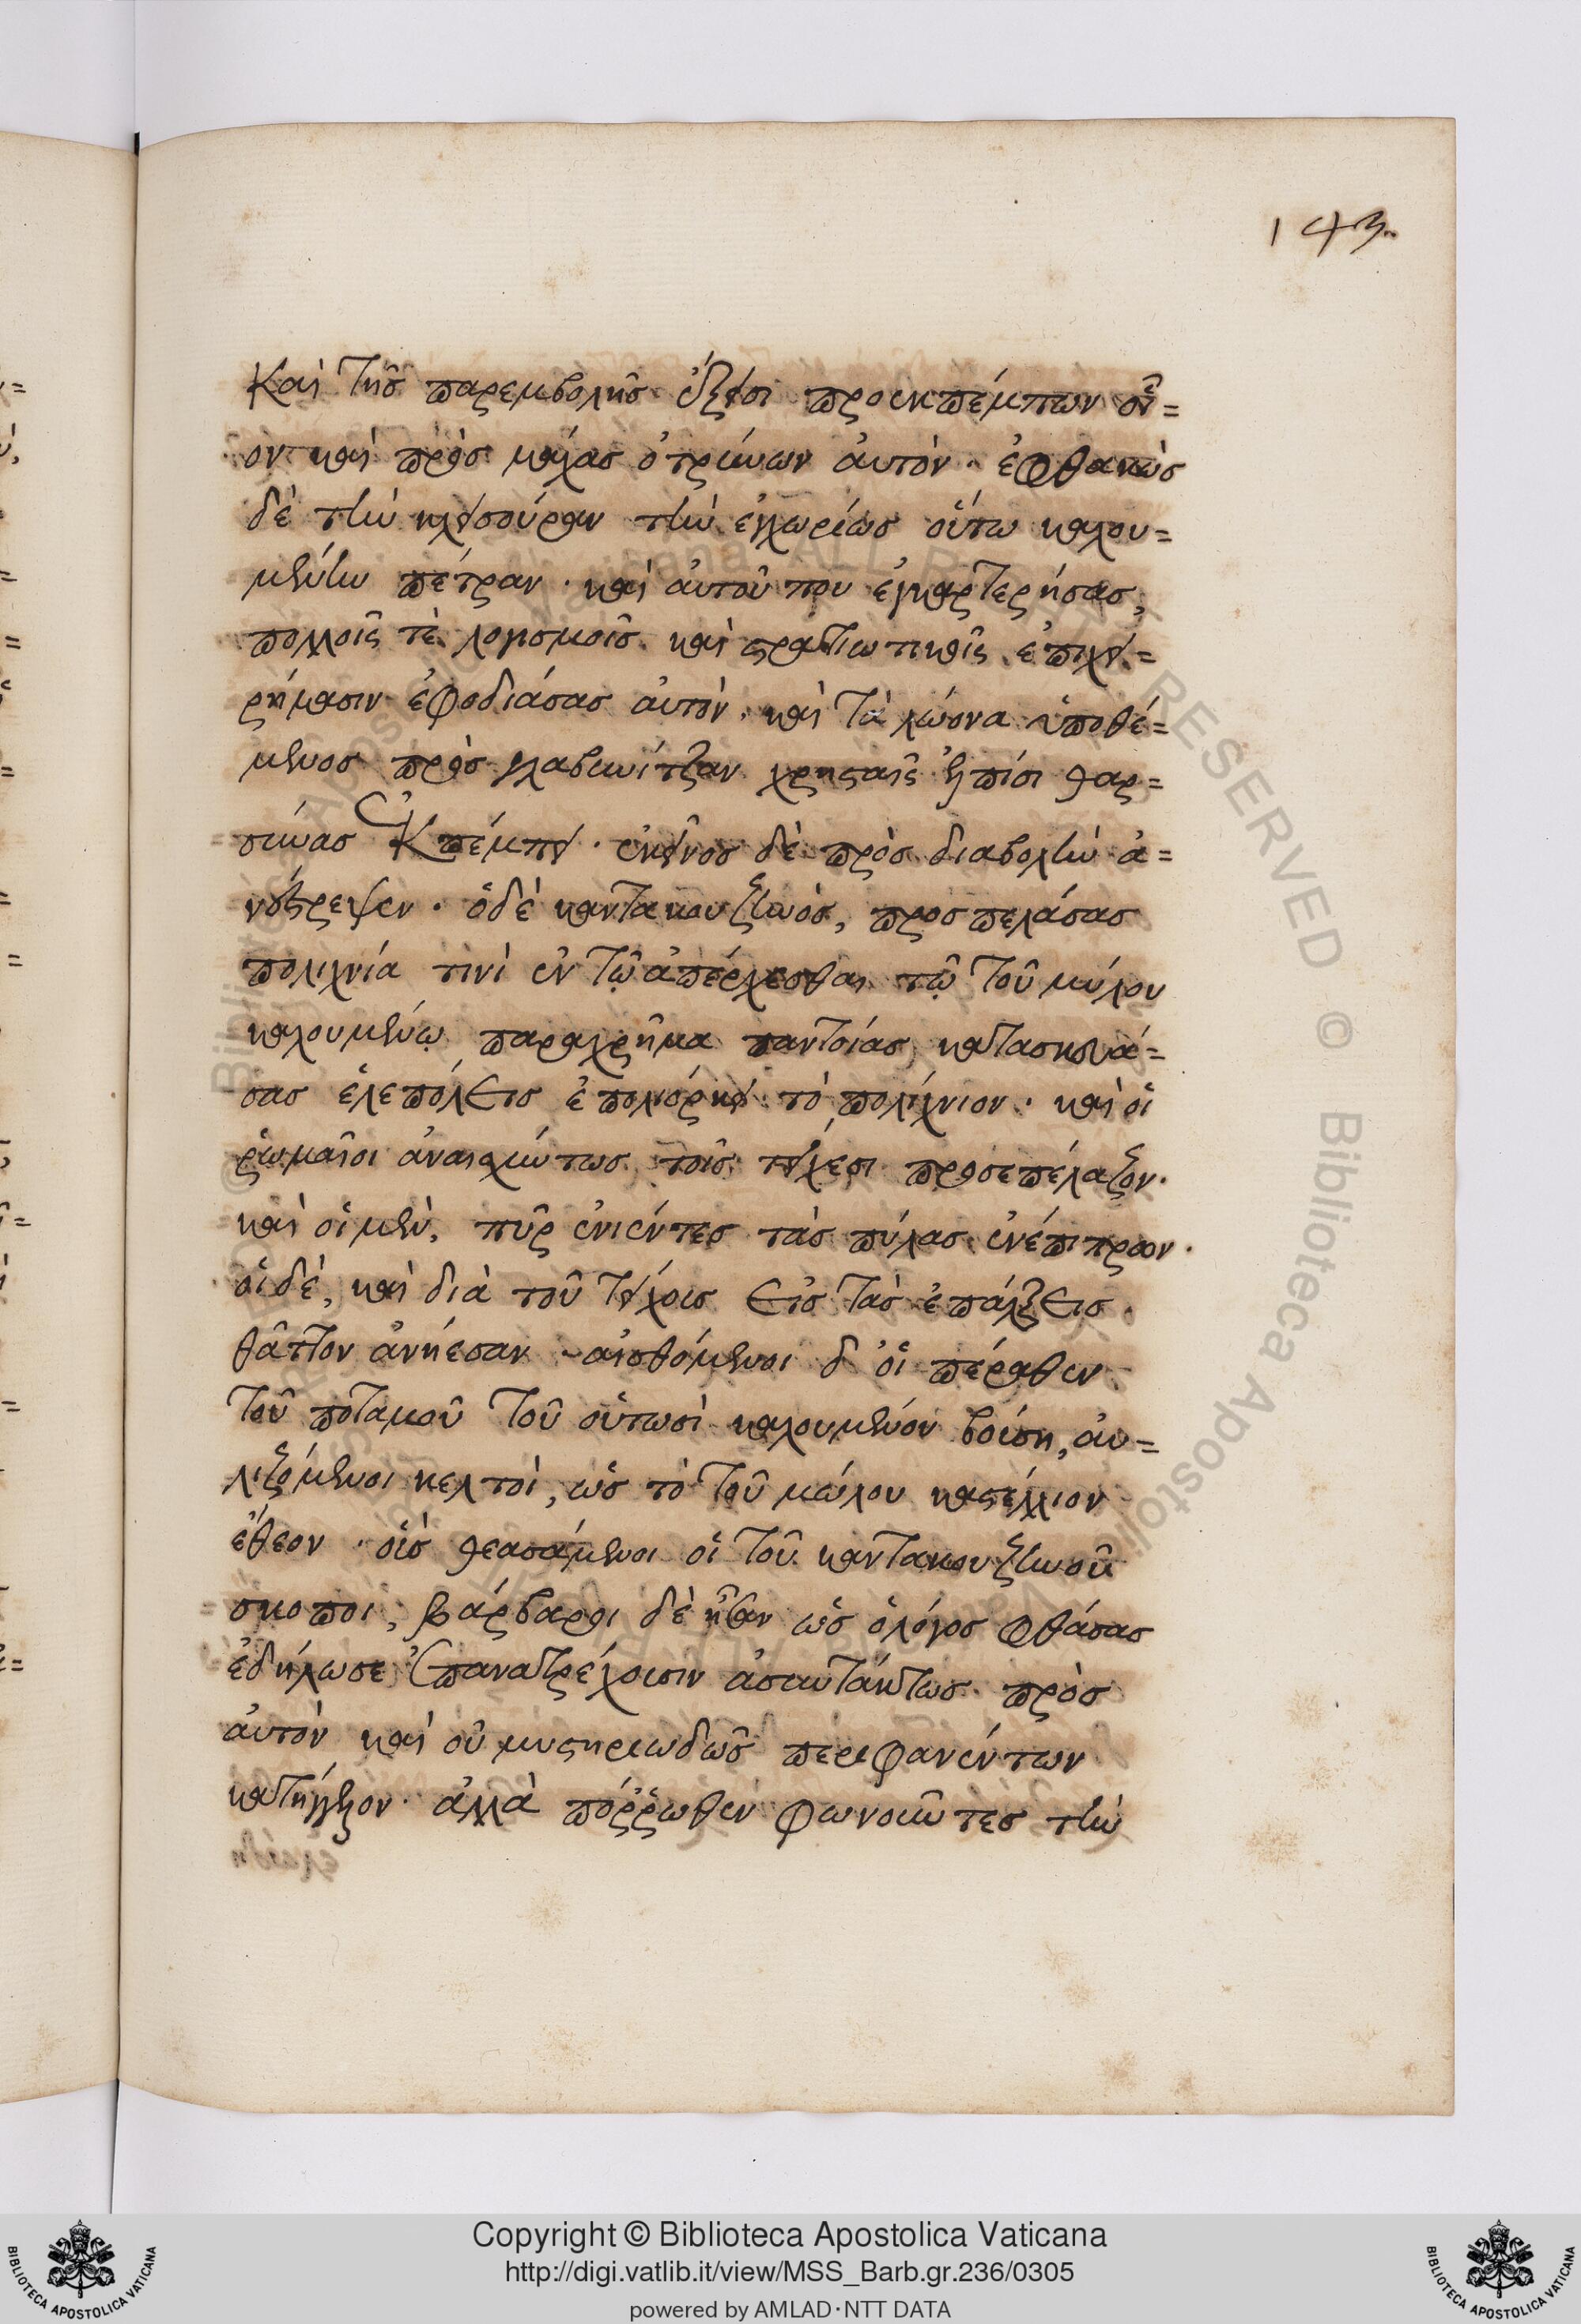 143.
Καὶ τῆς παρεμβολῆς ἔξεισι προεκπέμπων οἷ=
ον καὶ πρὸς μάχας ὀτρύνων ἀυτὸν. ἐφθακὼς
δὲ τὴν κλεισούραν τὴν ἐγχωρίως οὕτω καλου=
μένην πέτραν. καὶ ἀυτοῦ που ἐγκαρτερήσας,
πολλοῖς τὲ λογισμοῖς καὶ στρατιωτικοῖς ἐπιχει=
ρήμασιν ἐφοδιάσας αὐτὸν, καὶ τὰ λώονα ὑποθέ=
μενος πρὸς γλαβινίτζαν χρησταῖς ἐλπίσι θαρ=
σύνας ἐκπέμπει. ἐκεῖνος δὲ πρὸς διαβολὴν ἀ=
νέστρεψεν. ὁδὲ καντακουζηνὸς, προσπελάσας
πολιχνία τινὶ ἐν τῷ ἀπέρχεσθαι τῷ τοῦ μύλου
καλουμένῳ παραχρῆμα παντοίας κατασκευά=
σας ἑλεπόλεις ἐπολιόρκει τὸ πολίχνιον. καὶ οἱ
ῥωμαῖοι ἀναισχύντως τοῖς τείχεσι προσεπέλαζον.
καὶ οἱ μὲν, πῦρ ἐνιέντες τὰς πύλας ἐνέπιπρων.
οἱ δὲ, καὶ διὰ τοῦ τείχους εἰς τὰς ἐπάλξεις
θᾶττον ἀνῄεσαν. αἰσθόμενοι δ' οἱ πέραθεν
τοῦ ποταμοῦ τοῦ οὑτωσὶ καλουμένου βούση, ἀυ=
λιζόμενοι κελτοὶ, ὡς τὸ τοῦ μύλου καστέλλιον
ἔθεον. οἷς θεασάμενοι οἱ τοῦ καντακουζηνοῦ
σκοποι, βάρβαροι δὲ ἦσαν ὡς ὁ λόγος φθάσας
ἐδήλωσε, ἐπανατρέχουσιν ἀσυντάκτως πρὸς
ἀυτὸν καὶ οὐ μυστηριωδῶς περιφανέντων
κατήγγελλον. ἀλλὰ πόῤῥωθεν φωνοῦντες τὴν